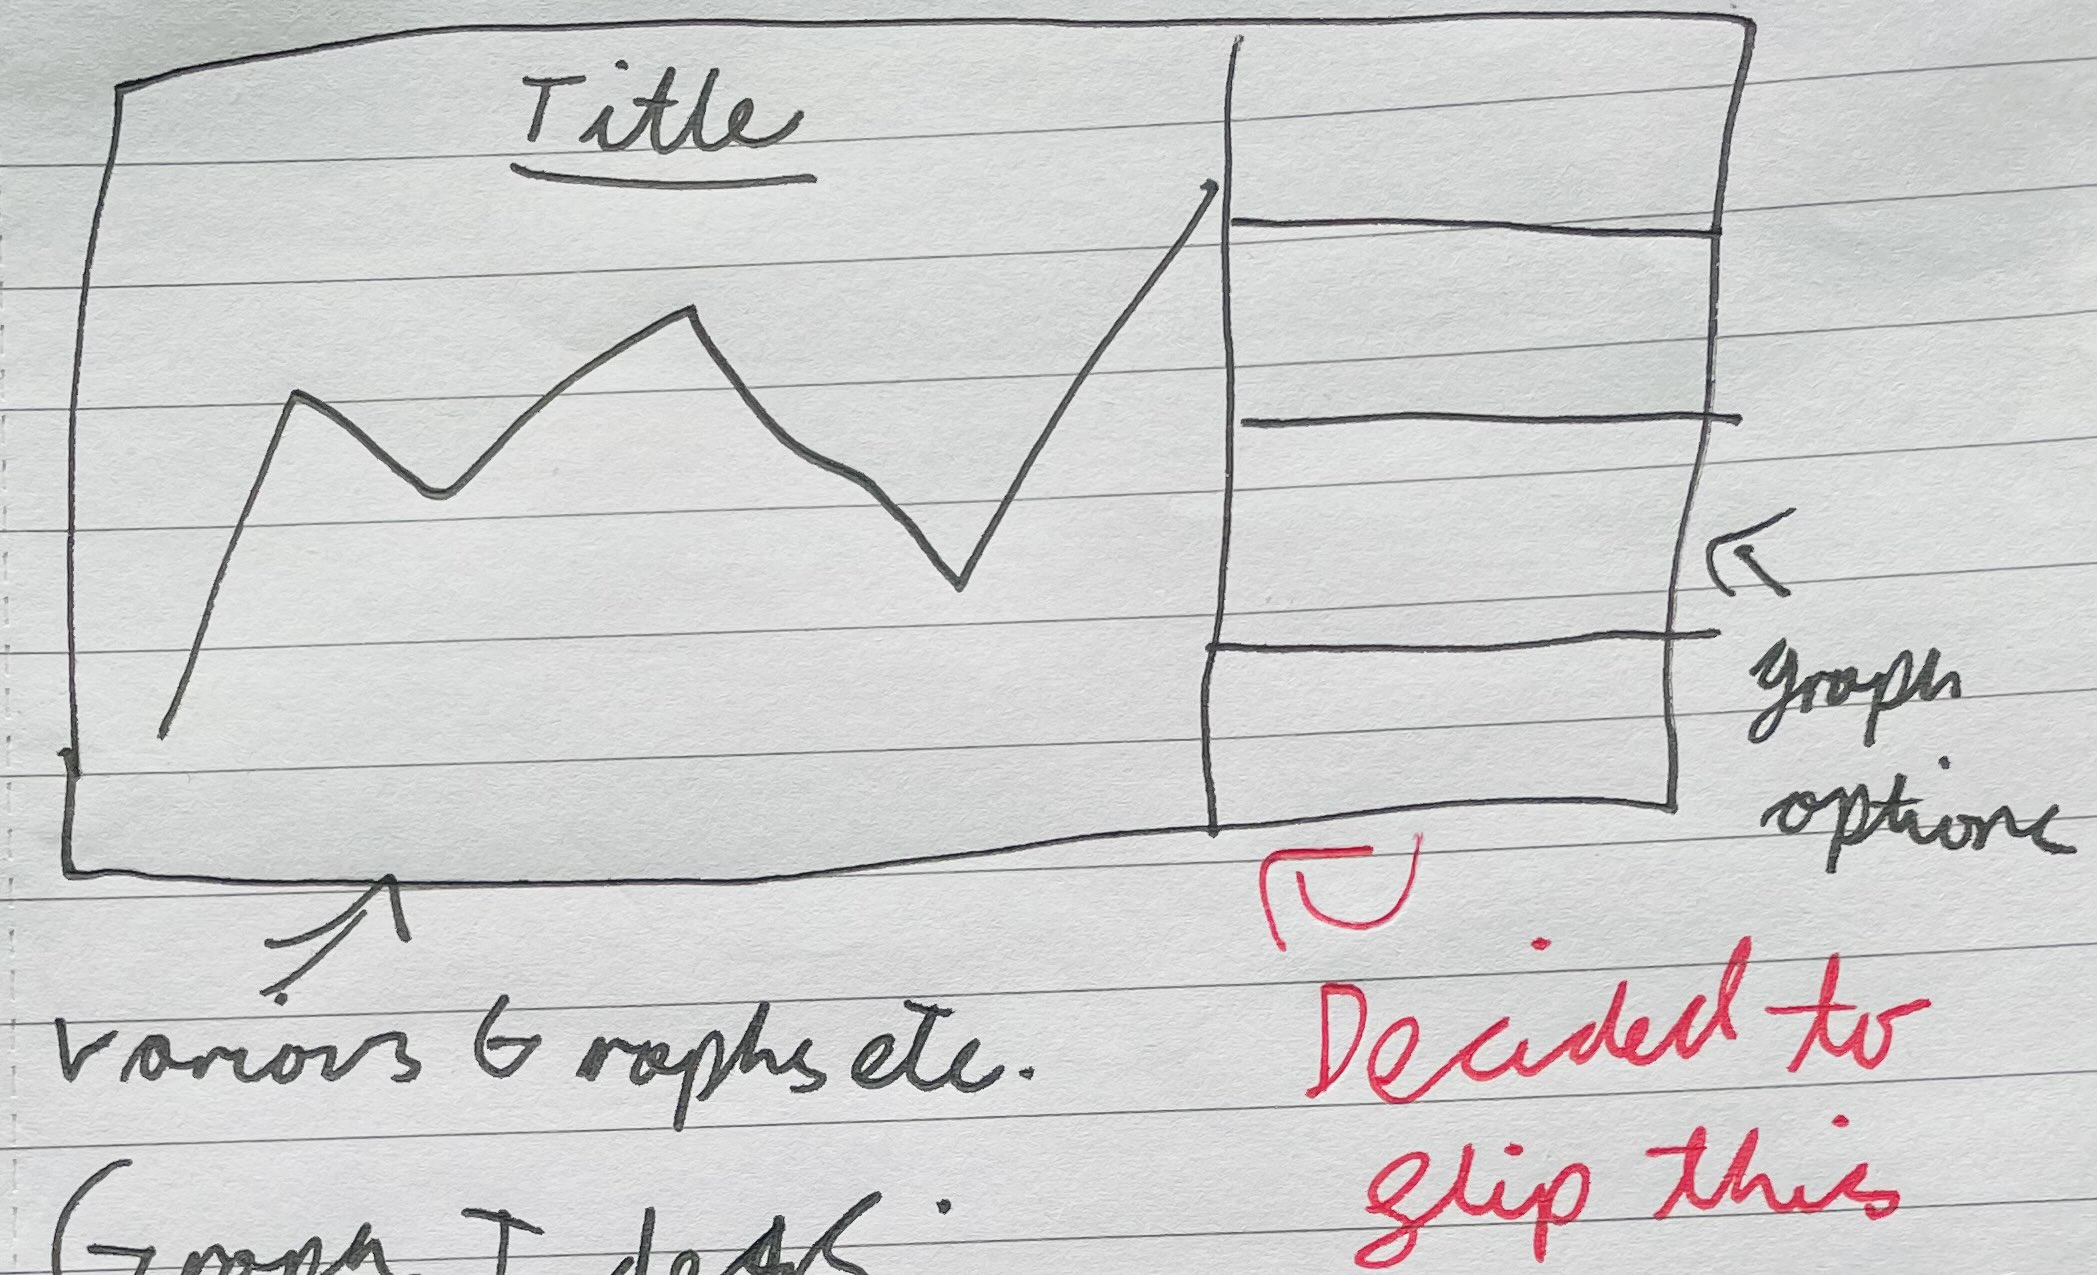 Title
graph
options
various Graphs etc.
Decided to
flip this
Graph Ideas: